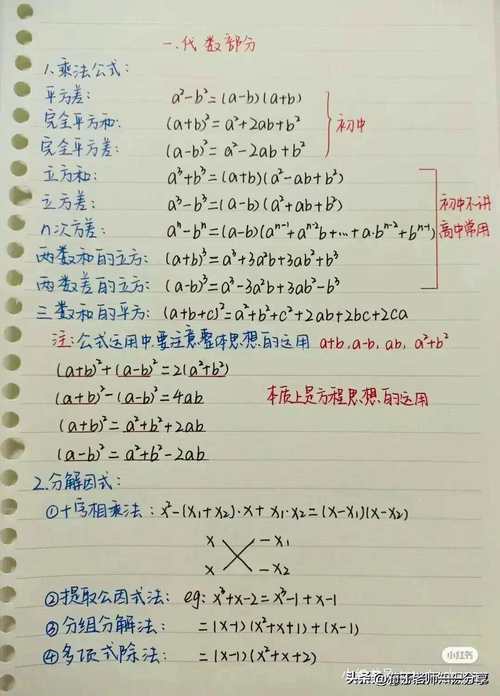 一.代数部分
1.乘法公式:
平方差: a²-b²=(a-b)(a+b)
完全平方和: (a+b)²=a²+2ab+b² 初中
完全平方差: (a-b)²=a²-2ab+b²
立方和: a³+b³=(a+b)(a²-ab+b²)
立方差: a³-b³=(a-b)(a²+ab+b²) 初中不讲
n次方差: aⁿ-bⁿ=(a-b)(aⁿ⁻¹+aⁿ⁻²b+…+a·bⁿ⁻²+bⁿ⁻¹) 高中常用
两数和的立方: (a+b)³=a³+3a²b+3ab²+b³
两数差的立方: (a-b)³=a³-3a²b+3ab²-b³
三数和的平方: (a+b+c)²=a²+b²+c²+2ab+2bc+2ca
注:公式运用中要注意整体思想的运用 a+b, a-b, ab, a²+b²
(a+b)²+(a-b)²=2(a²+b²)
(a+b)²-(a-b)²=4ab 本质上是方程思想的运用
(a+b)²=a²+b²+2ab
(a-b)²=a²+b²-2ab
2.分解因式:
①十字相乘法: x²-(x₁+x₂)·x+x₁·x₂=(x-x₁)(x-x₂)
x -x₁
x -x₂
②提取公因式法: eg: x³+x-2=x³-1+x-1
③分组分解法: =(x-1)(x²+x+1)+(x-1)
④多项式除法: =(x-1)(x²+x+2)
小红书